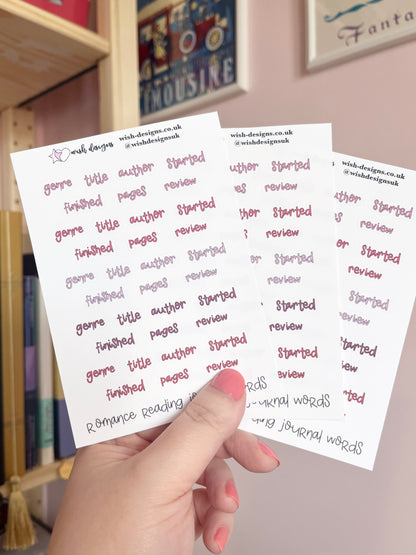 LIMOUSINE
Fanta
wish designs
wish-designs.co.uk
@wishdesignsuk
genre title author started
finished pages review
genre title author started
finished pages review
genre title author started
finished pages review
genre title author started
finished pages review
genre title author started
finished pages review
Romance Reading jo
wish-designs.co.uk
@wishdesignsuk
started
review
started
review
started
review
started
review
started
review
ournal words
wish-designs.co.uk
@wishdesignsuk
started
review
started
review
started
review
started
review
started
review
ng journal words